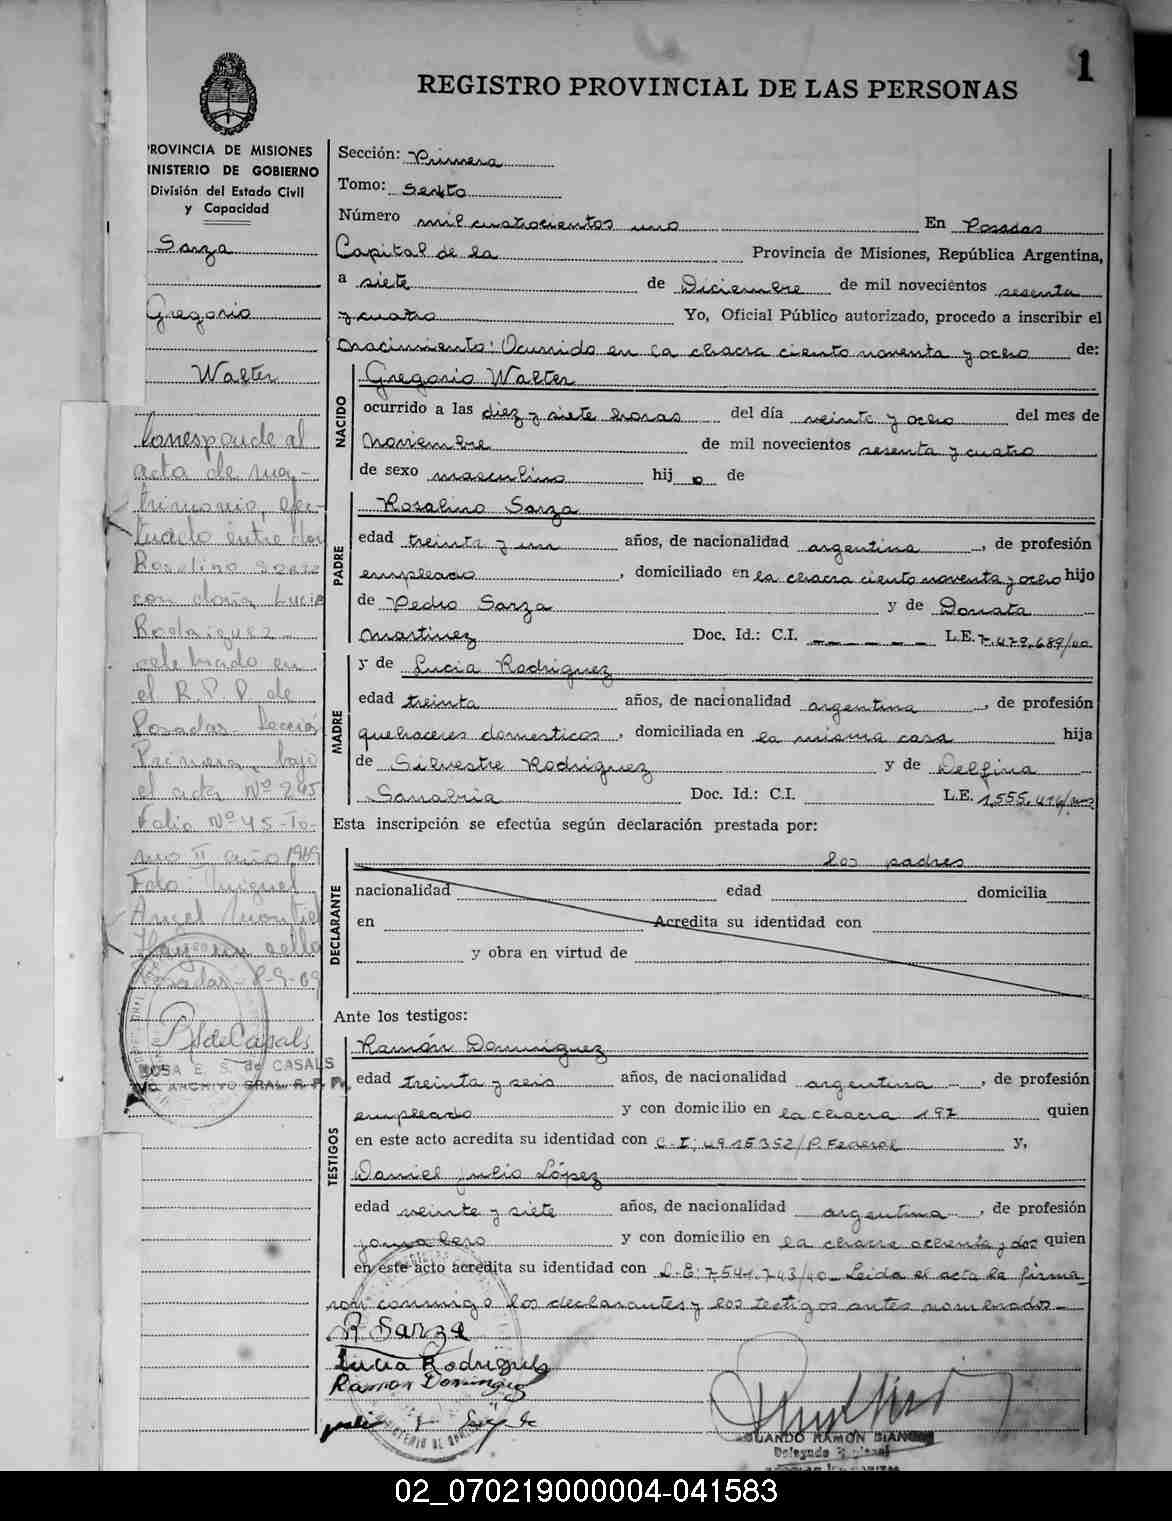 1
REGISTRO PROVINCIAL DE LAS PERSONAS
PROVINCIA DE MISIONES
MINISTERIO DE GOBIERNO
División del Estado Civil
y Capacidad
Sarza
Gregorio
Walter
Corresponde al
acta de ma-
trimonio, efec-
tuado entre don
Rosalino Sarza
con doña Lucia
Rodriguez
celebrado en
el R. P. P. de
Posadas Sección
Primera, bajo
el acta Nº 295
Folio Nº 45 - To-
mo II año 1969
Fdo Miguel
Angel Montiel
Hay un sello
Posadas - 8-9-69
R S de Casals
ROSA E. S. de CASALS
ARCHIVO GRAL. R. P. P.
Sección: Primera
Tomo: Sexto
Número mil cuatrocientos uno En Posadas
Capital de la Provincia de Misiones, República Argentina,
a siete de Diciembre de mil novecientos sesenta
y cuatro Yo, Oficial Público autorizado, procedo a inscribir el
nacimiento: Ocurrido en la chacra ciento noventa y ocho de:
NACIDO
Gregorio Walter
ocurrido a las diez y siete horas del día veinte y ocho del mes de
Noviembre de mil novecientos sesenta y cuatro
de sexo masculino hij o de
PADRE
Rosalino Sarza
edad treinta y un años, de nacionalidad argentina, de profesión
empleado, domiciliado en la chacra ciento noventa y ocho hijo
de Pedro Sarza y de Donata
Martinez Doc. Id.: C.I. — — — — — — L.E. 7.479.689/00
MADRE
y de Lucia Rodriguez
edad treinta años, de nacionalidad argentina, de profesión
quehaceres domesticos, domiciliada en la misma casa hija
de Silvestre Rodriguez y de Delfina
Sanabria Doc. Id.: C.I. L.E. 1.555.416/
Esta inscripción se efectúa según declaración prestada por:
DECLARANTE
los padres
nacionalidad edad domicilia
en Acredita su identidad con
y obra en virtud de
Ante los testigos:
TESTIGOS
Ramón Dominguez
edad treinta y seis años, de nacionalidad argentina, de profesión
empleado y con domicilio en la chacra 197 quien
en este acto acredita su identidad con C.I; 4915352/P. Federal y,
Daniel Julio López
edad veinte y siete años, de nacionalidad argentina, de profesión
jornalero y con domicilio en la chacra ochenta y dos quien
en este acto acredita su identidad con L.E: 7.541.743/40 Leida el acta la firma-
ron conmigo los declarantes y los testigos antes nombrados
R Sarza
Lucia Rodriguez
Ramon Dominguez
RAMON BIAN
Delegado
02_070219000004-041583